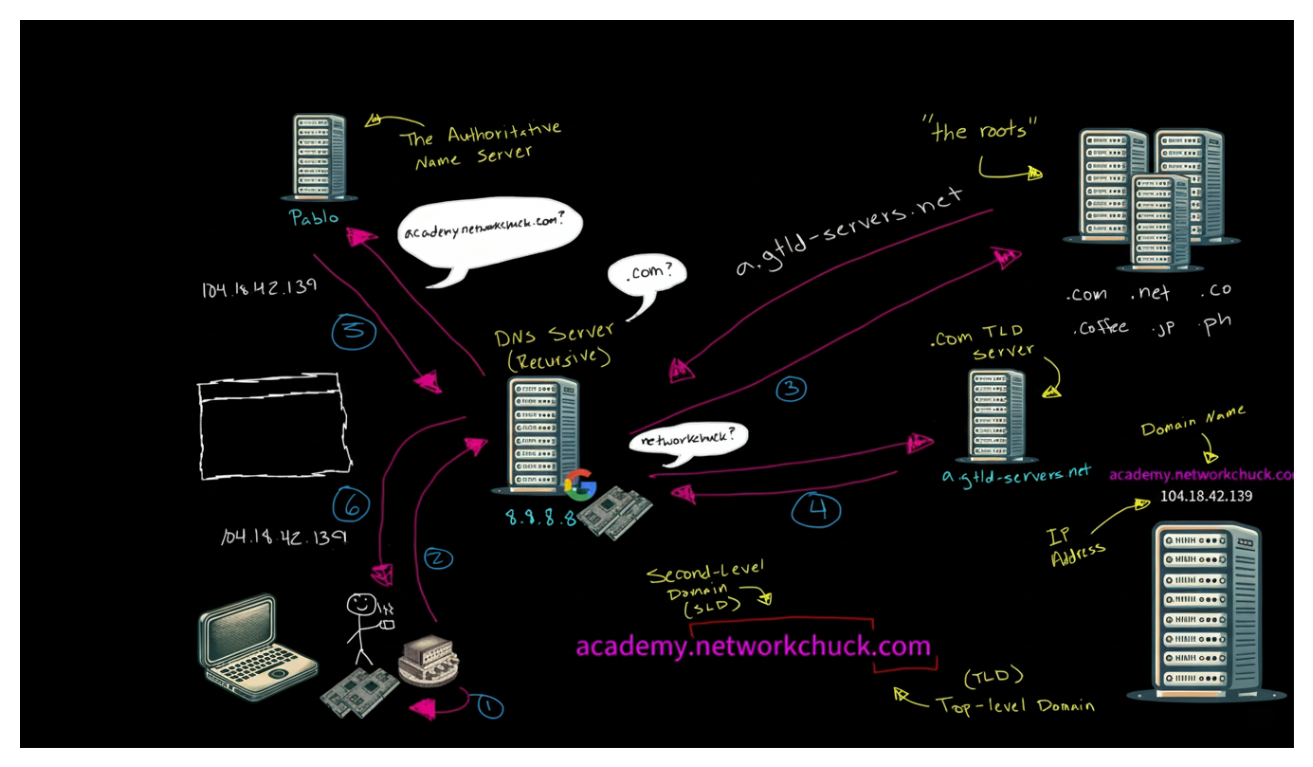 The Authoritative
Name Server
Pablo
academy.networkchuck.com?
"the roots"
a.gtld-servers.net
.com?
.com .net .co
.coffee .jp .ph
104.18.42.139
5
DNS Server
(Recursive)
3
.com TLD
Server
networkchuck?
a.gtld-servers.net
Domain Name
academy.networkchuck.co
104.18.42.139
8.8.8.8
4
6
104.18.42.139
2
IP
Address
Second-Level
Domain
(SLD)
academy.networkchuck.com
(TLD)
Top-level Domain
1